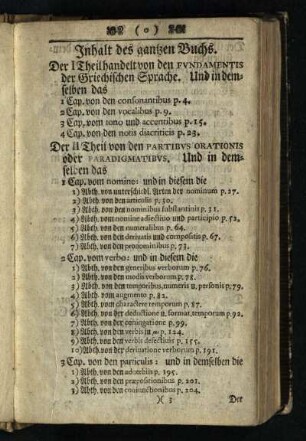 ( o )
Inhalt des gantzen Buchs.
Der I Theil handelt von den FVNDAMENTIS
der Griechischen Sprache. Und in dem-
selben das
1 Cap. von den consonantibus p. 4.
2 Cap. von den vocalibus p. 9.
3 Cap. vom tono und accentibus p. 15.
4 Cap. von den notis diacriticis p. 23.
Der II Theil von den PARTIBVS ORATIONIS
oder PARADIGMATIBVS. Und in dem-
selben das
1 Cap. vom nomine: und in diesem die
1) Abth. von unterschiedl. Arten der nominum p. 27.
2) Abth. von den articulis p. 30.
3) Abth. von den nominibus substantivis p. 31.
4) Abth. vom nomine adiectiuo und participio p. 52.
5) Abth. von den numeralibus p. 64.
6) Abth. von den deriuatis und compositis p. 67.
7) Abth. von den pronominibus p. 73.
2 Cap. vom verbo: und in diesem die
1) Abth. von den generibus verborum p. 76.
2) Abth. von den modis verborum p. 78.
3) Abth. von den temporibus, numeris u. personis p. 79.
4) Abth. vom augmento p. 82.
5) Abth. vom charactere temporum p. 87.
6) Abth. von der deductione u. format. temporum p. 92.
7) Abth. von der coniugatione p. 99.
8) Abth. von den verbis in p. 124.
9) Abth. von den verbis defectiuis p. 155.
10) Abth. von der deriuatione verborum p. 191.
3 Cap. von den particulis: und in demselben die
1) Abth. von den aduerbiis p. 195.
2) Abth. von den præpositionibus p. 201.
3) Abth. von den coniunctionibus p. 204.
Der